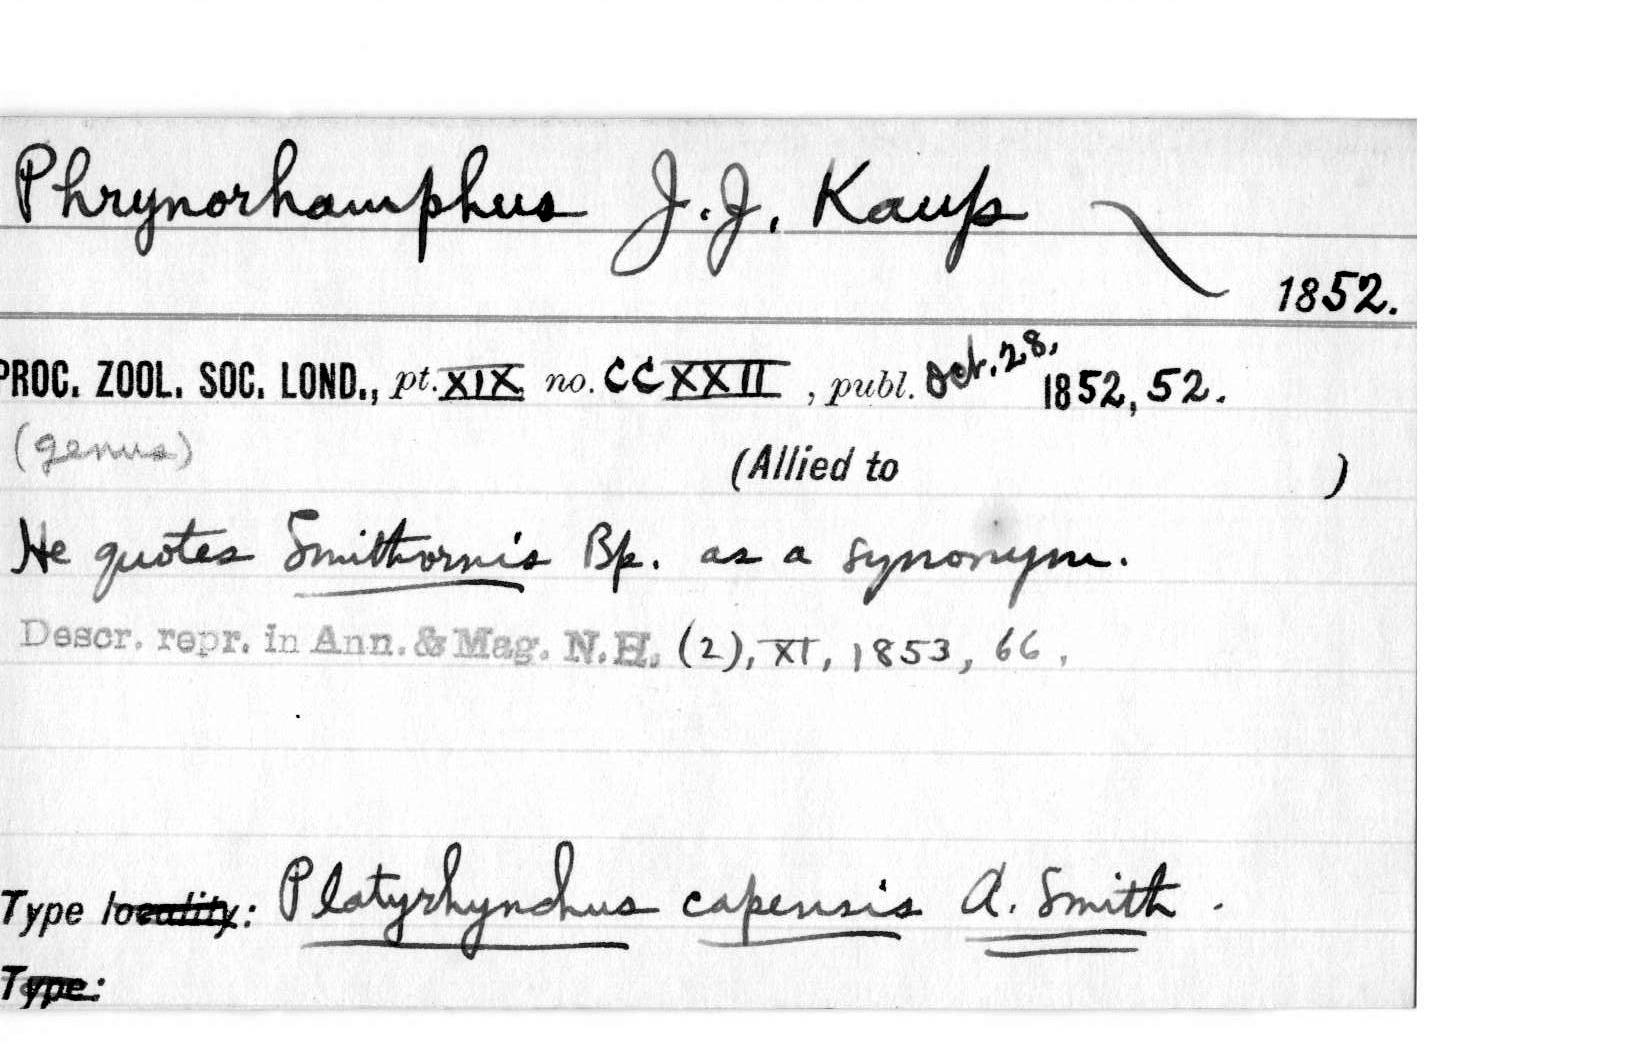 Phrynorhamphus J. J. Kaup
1852.
PROC. ZOOL. SOC. LOND., pt. XIX no. CCXXII, publ. Oct. 28, 1852, 52.
(genus)
(Allied to )
He quotes Smithornis Bp. as a synonym.
Descr. repr. in Ann. & Mag. N.H. (2), XI, 1853, 66.
Type locality: Platyrhynchus capensis A. Smith.
Type: